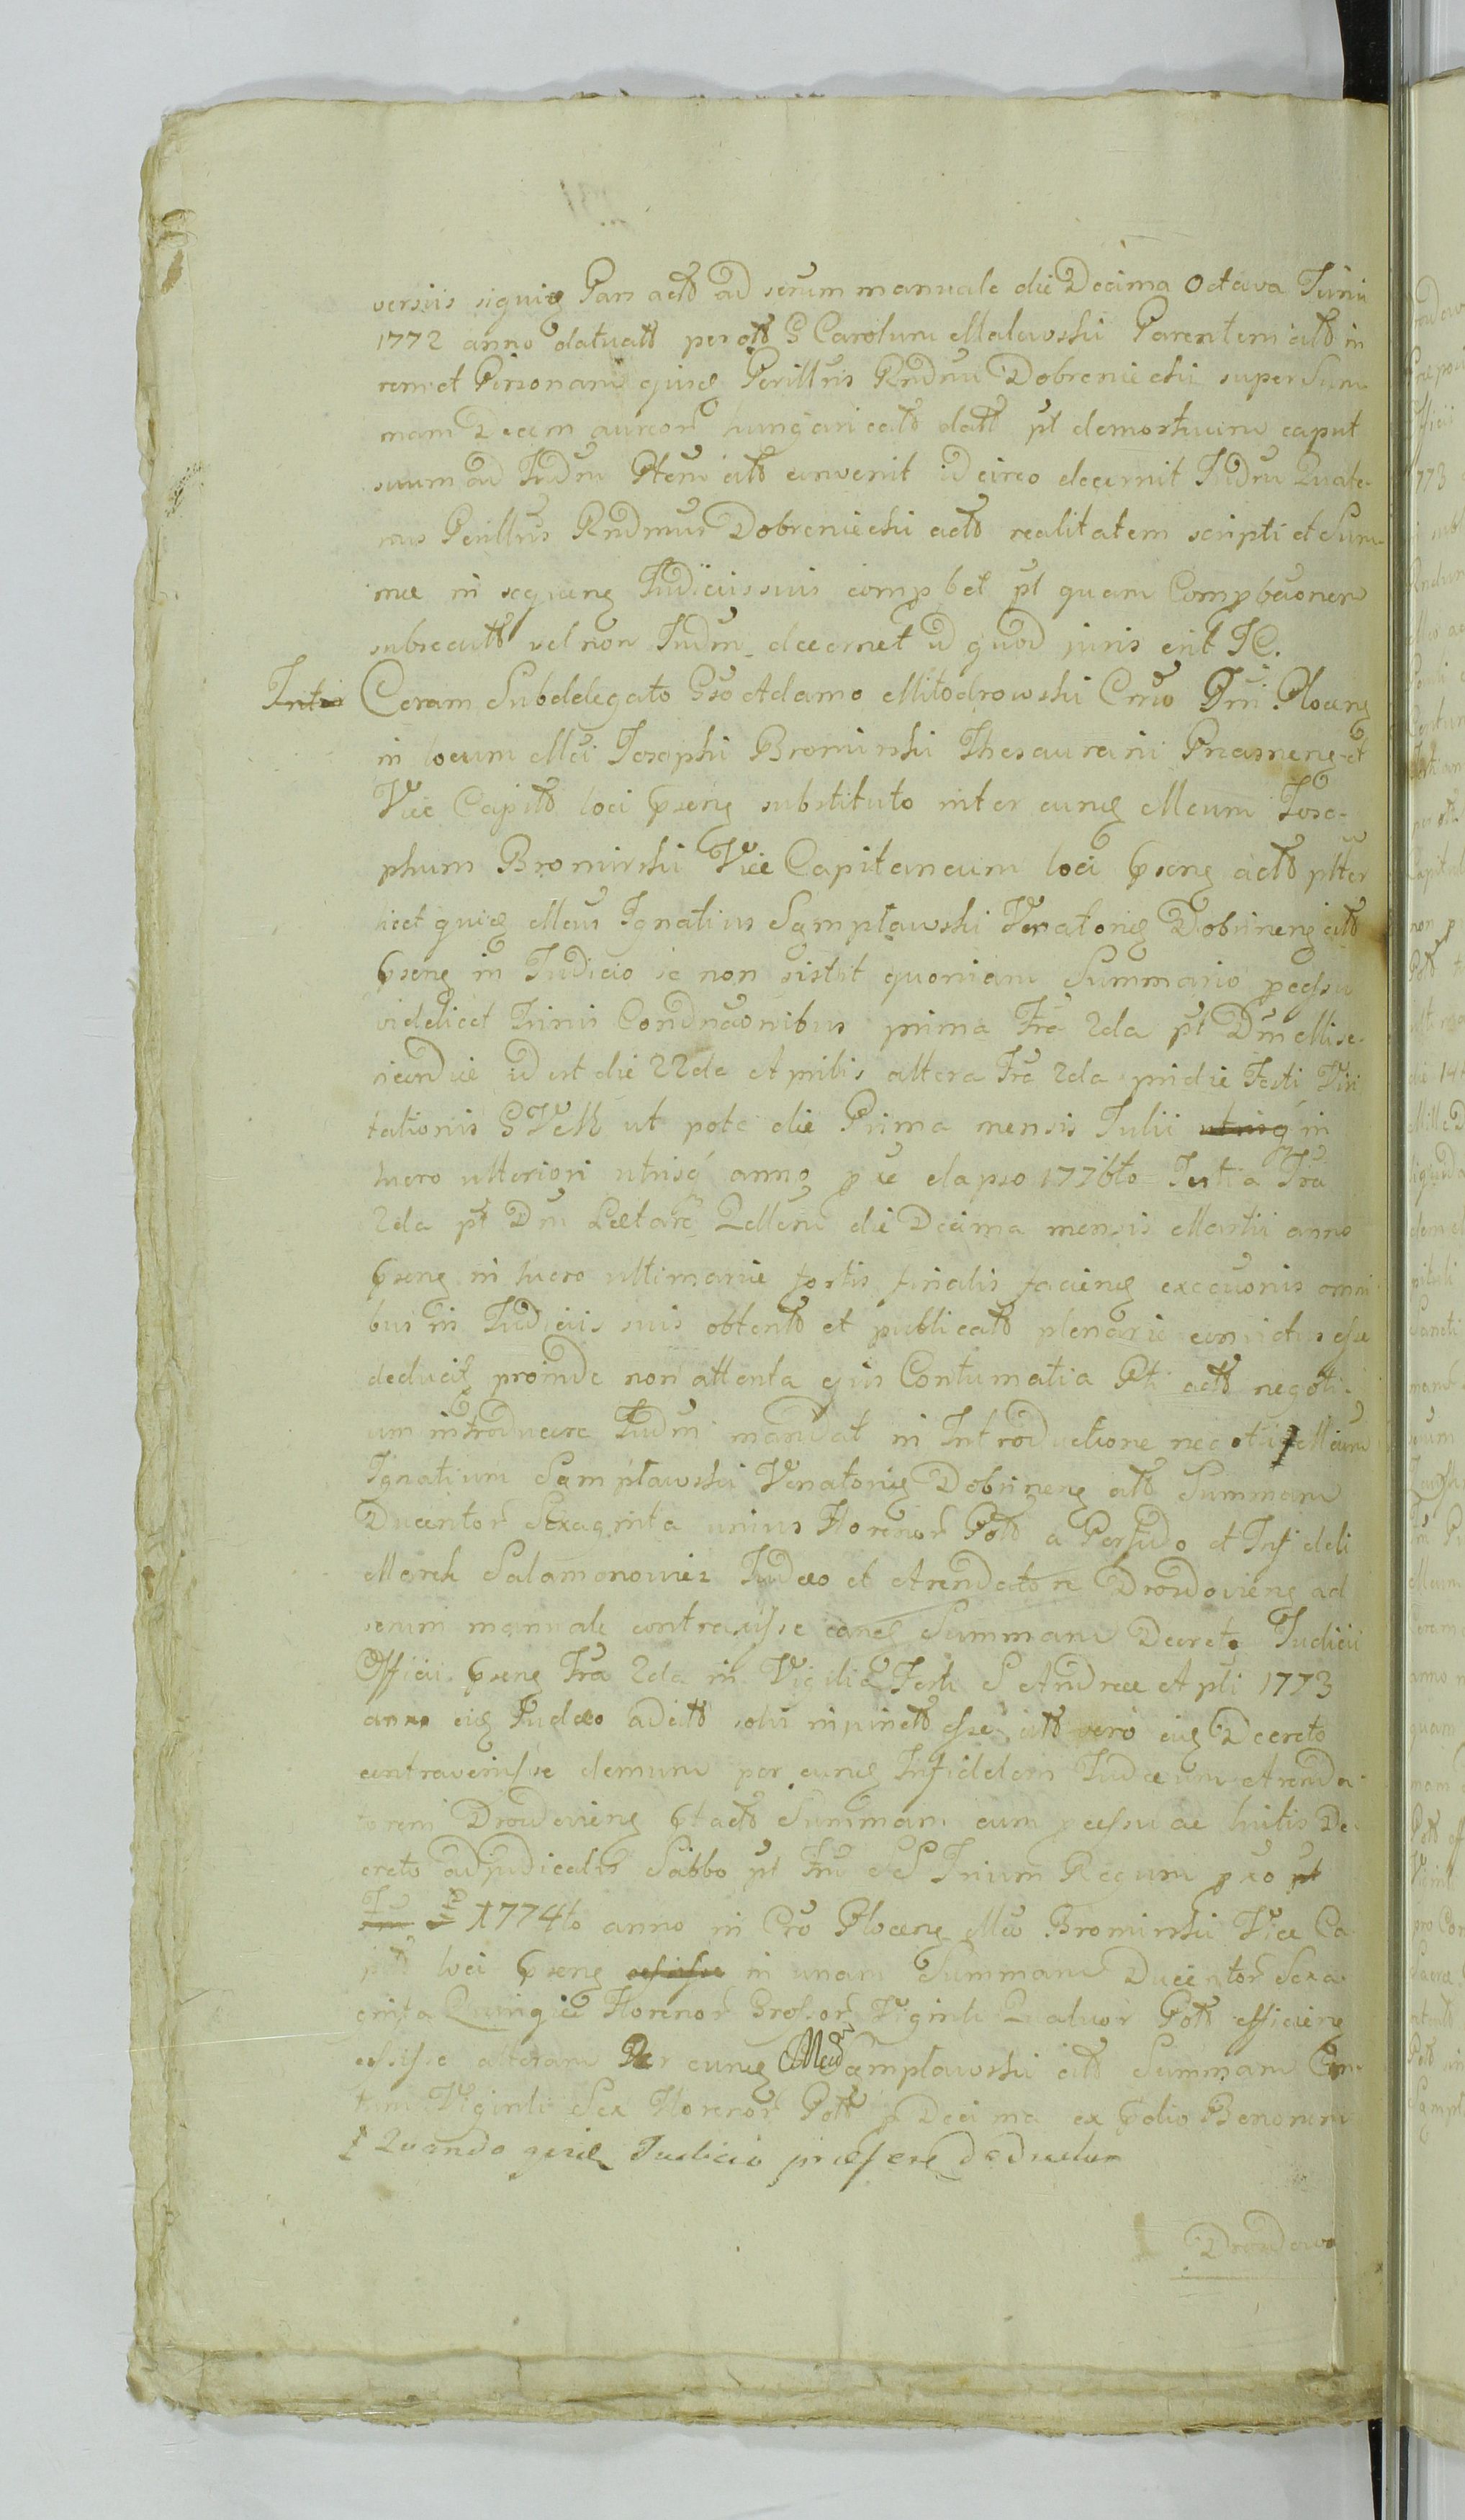 versus siquid Pars actt ad serum manuale die Decima Octava Junii
1772 anno datuatt per actt G Carolum Malewski Parentem citt in
rem et Personam ejusq Perillris Rndmi Dobreniecki super Sum
mam Decem aureor hungaricatt datt pt demortuum caput
suum ad Judm Ptem citt convenit idcirco decernit Judm Quate-
nus Perillris Rndmus Dobreniecki actt realitatem scripti et Sum-
mæ in sequenq Judiciis suis compbet pt quam Compbaonem
subsecutt vel non Judm decernet id quod juris erit IC.
Coram Subdelegato Gso Adamo Miłodrowski Crrio Tri Plocenq
in locum Mci Josephi Bromirski Thesaurarii Prasnenq et
Vice Capitt loci pnsenq substituto inter eunq Mcum Jose-
phum Bromirski Vice Capitaneum loci pnsenq actt plter
licet quidq Mcus Ignatius Sąmpławski Venatoriq Dobrinenq citt
pnsenq in Judicio se non sistit quoniam Summario pcessu
videlicet Trinis Condnaonibus prima Fra 2da pt Dm Mise-
ricordiæ id est die 22da Aprilis altera Fra 2da pridie Festi Visi
tationis BVM ut pote die Prima mensis Julii in
lucro ulteriori utrisq anno elapso 1776to Tertia Fra
2da pt Dm Lætare Qdlem die Decima mensis Martii anno
pnsenq in lucro ultimariæ fortis finalis facienq execuonis omni
bus in Judiciis suis obtentt et publicatt plenarie convictus esse
deducit proinde non attenta ejus Contumatia Pti actt negoti-
um introducere Judm mandat in Introductione negotii Mcum
Ignatium Sąmpławski Venatoriq Dobrinenq citt Summam
Ducentor Sexaginta unius Florenor Polt a Perfido et Infideli
Marek Salamonowicz Judæo et Arendatore Drozdovienq ad
serum manuale contraxisse eanq Summam Decreto Judicii
Officii pnsenq Fra 2da in Vigilia Festi S Andreæ Apli 1773
anno eiq Judæo ad citt solvi injunctt esse, citt vero eiq Decreto
contravenisse demum per eunq Infidelem Judæum Arenda-
torem Drozdovienq actt Summam cum pcessu ac luitis De-
creto adjudicatis Sabbo pt Fm SS Trium Regum pro
1774to anno in Cro Plocenq Mco Bromirski Vice Ca
pitt loci pnsenq in unam Summam Ducentor Sexa
ginta Quinque Florenor Grossor Viginti Quatuor Polt efficienq
cessisse alteram Per eunq Mcum Sąmpławski citt Summam Cen-
tum Viginti Sex Florenor Polt p Decima ex Bonorum
Quando quidq Judicio deductum
Drozdowo